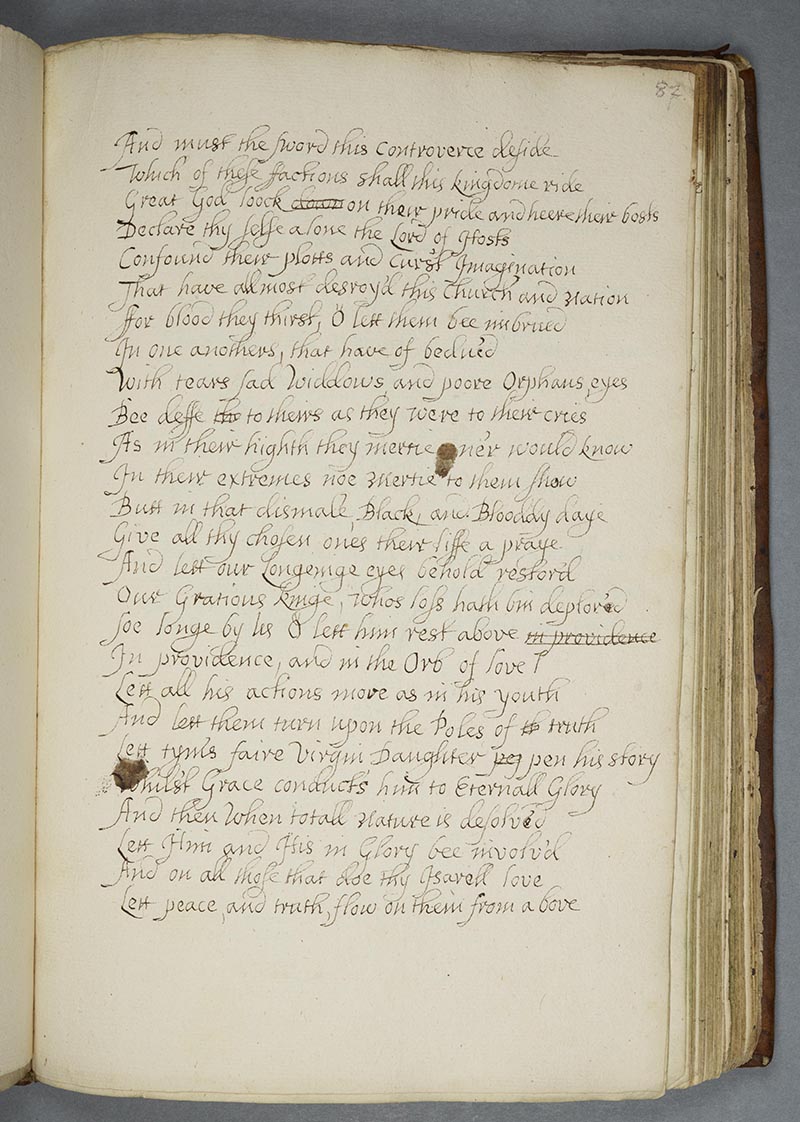 87
And must the sword this Controverce deside
Which of these factions shall this kingdome ride
Great God loock down on their pride and heere their bosts
Declare thy selfe alone the Lord of Hosts
Confound their plotts and Curs't Imagination
That have allmost desroy'd this Church and Nation
ffor blood they thirst, O lett them bee imbrued
In one anothers, that have of bedu'd
With tears sad Widdows, and poore Orphans, eyes
Bee deffe tho to theirs as they were to their cries
As in their highth they mercie ne'r would know
In their extremes noe Mercie to them show
Butt in that dismale, Black, and Blooddy daye
Give all thy chosen ones their liffe a praye
And lett our Longeinge eyes behold restor'd
Our Gratious kinge, whos loss hath bin deplor'd
soe longe by us O lett him rest above in providence
In providence, and in the Orb of love
Lett all his actions move as in his youth
And lett them turn upon the Poles of th truth
Lett tym's faire Virgin Daughter pen his story
Whilst Grace conducts him to Eternall Glory
And then When totall Nature is desolv'd
Lett Him and His in Glory bee involv'd
And on all those that doe thy Isarell love
Lett peace, and truth, flow on them from above